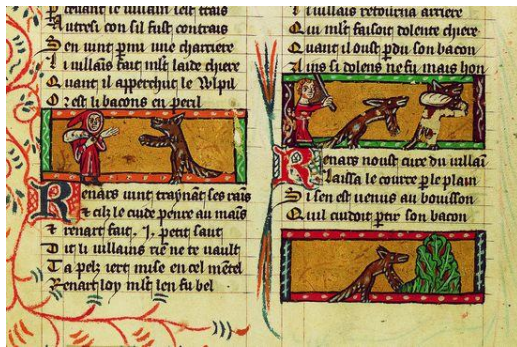 Autresi con sil fust contrais
Sen vint pmi une charriere
Li vilains fait mlt laide chiere
Quant il apperchut le Wlpil
Or est li bacons en peril
Renars vint traynant ses rais
Et cilz le cuide penre au mais
Et renart fait .i. petit saut
Dit li villains rie ne te vault
Ta pelz iert mise en cel metel
Renart loy mlt len fu bel
li villains retourna arriere
Qui mlt faisoit dolente chiere
Quant il oust pdu son bacon
Ains si dolens ne fu mais hon
Renars noust cure du villai
Laissa le courre p le plain
Si sen est venus au bouisson
Quil cuidoit ptir son bacon